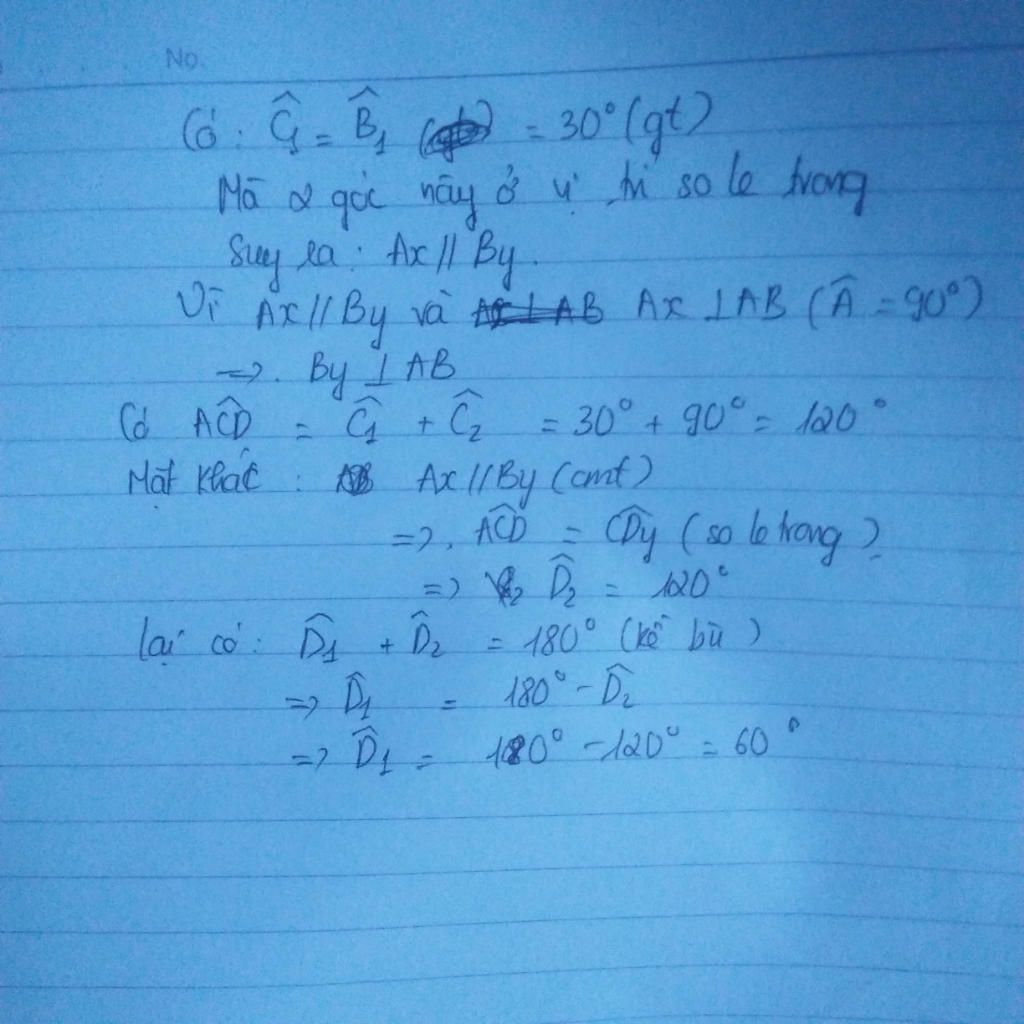 No.
Có : Ĉ₁ = B̂₁ = 30° (gt)
Mà 2 góc này ở vị trí so le trong
Suy ra : Ax // By.
Vì Ax // By và Ax ⊥ AB (Â = 90°)
=> . By ⊥ AB
Có AĈD = Ĉ₁ + Ĉ₂ = 30° + 90° = 120°
Mặt khác : Ax // By (cmt)
=> . AĈD = CD̂y (so le trong)
=> D̂₂ = 120°
Lại có : D̂₁ + D̂₂ = 180° (kề bù)
=> D̂₁ = 180° - D̂₂
=> D̂₁ = 180° - 120° = 60°